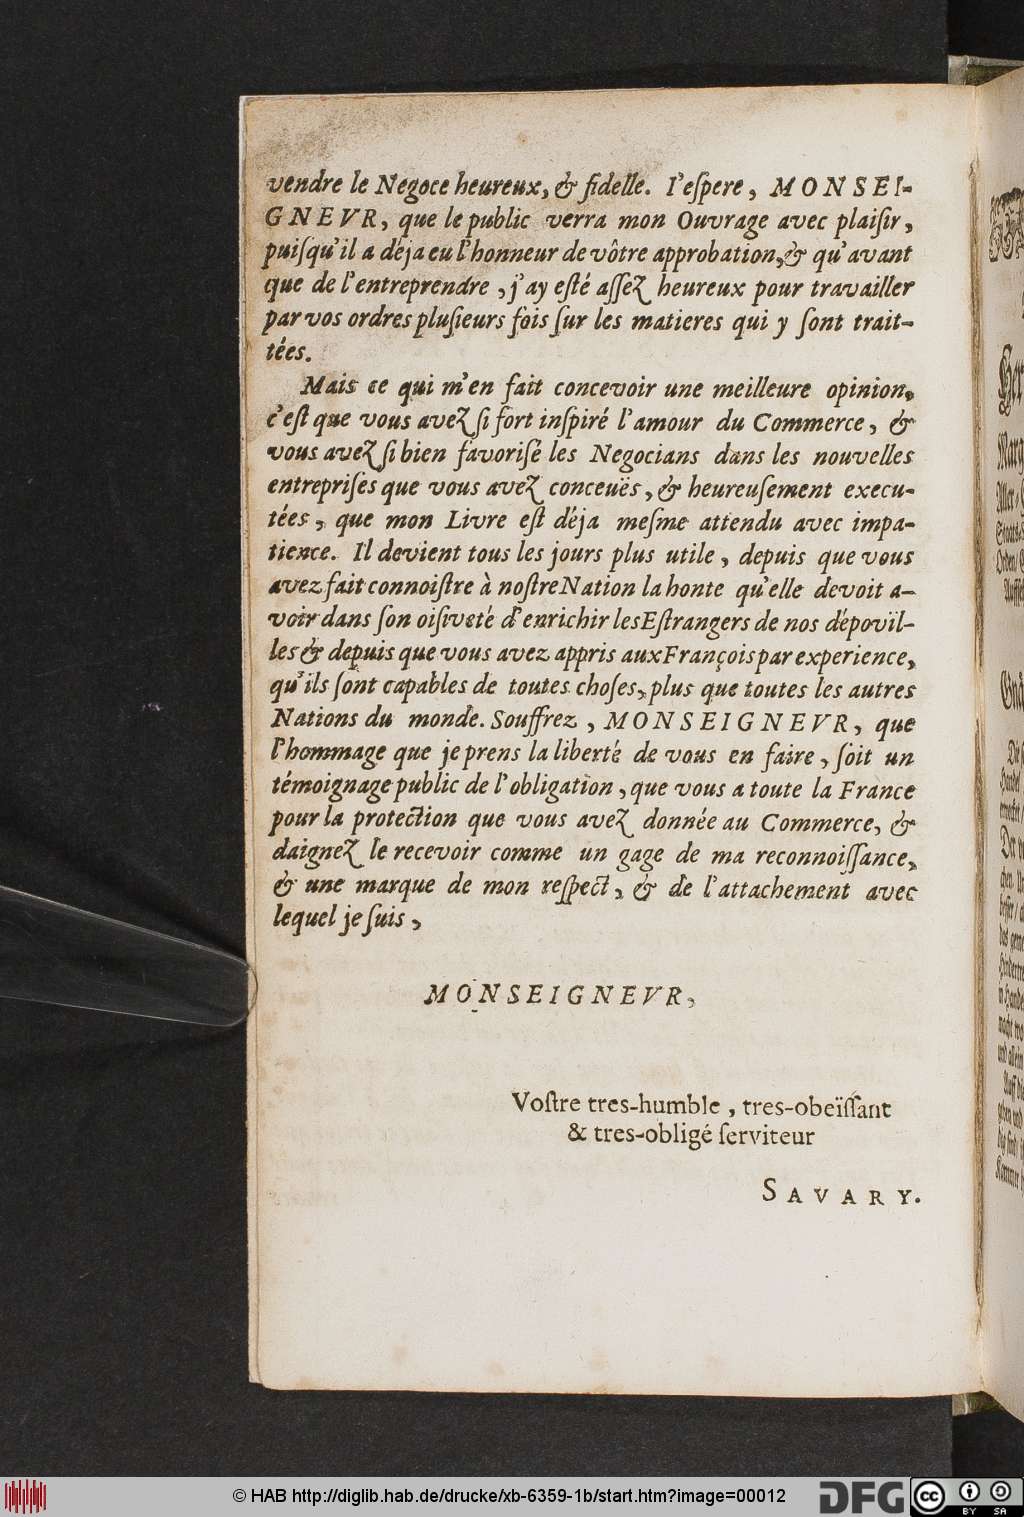 vendre le Negoce heureux, & fidelle. I'eſpere, MONSEI-
GNEVR, que le public verra mon Ouvrage avec plaiſir,
puiſqu'il a déja eu l'honneur de vôtre approbation, & qu'avant
que de l'entreprendre, j'ay eſté aſſez heureux pour travailler
par vos ordres pluſieurs fois ſur les matieres qui y ſont trait-
tées.
Mais ce qui m'en fait concevoir une meilleure opinion,
c'eſt que vous avez ſi fort inſpiré l'amour du Commerce, &
vous avez ſi bien favoriſé les Negocians dans les nouvelles
entrepriſes que vous avez conceuës, & heureuſement execu-
tées, que mon Livre eſt déja meſme attendu avec impa-
tience. Il devient tous les jours plus utile, depuis que vous
avez fait connoiſtre à noſtre Nation la honte qu'elle devoit a-
voir dans ſon oiſiveté d'enrichir les Eſtrangers de nos dépoüil-
les & depuis que vous avez appris aux François par experience,
qu'ils ſont capables de toutes choſes, plus que toutes les autres
Nations du monde. Souffrez, MONSEIGNEVR, que
l'hommage que je prens la liberté de vous en faire, ſoit un
témoignage public de l'obligation, que vous a toute la France
pour la protection que vous avez donnée au Commerce, &
daignez le recevoir comme un gage de ma reconnoiſſance,
& une marque de mon reſpect, & de l'attachement avec
lequel je ſuis,
MONSEIGNEVR,
Voſtre tres-humble, tres-obeïſſant
& tres-obligé ſerviteur
SAVARY.
© HAB http://diglib.hab.de/drucke/xb-6359-1b/start.htm?image=00012
DFG
cc
BY SA